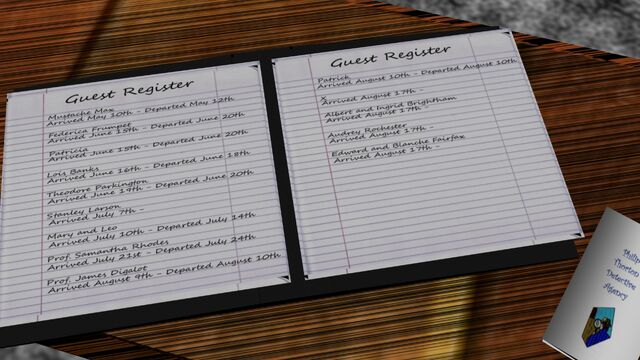 Guest Register
Mustache Max
Arrived May 10th - Departed May 12th
Federica Frumpet
Arrived June 15th - Departed June 20th
Patricia
Arrived June 15th - Departed June 20th
Lois Banks
Arrived June 16th - Departed June 18th
Theodore Parkington
Arrived June 19th - Departed June 20th
Stanley Larson
Arrived July 7th -
Mary and Leo
Arrived July 10th - Departed July 14th
Prof. Samantha Rhodes
Arrived July 21st - Departed July 24th
Prof. James Digalot
Arrived August 9th - Departed August 10th
Guest Register
Patrick
Arrived August 10th - Departed August 10th
X
Arrived August 17th -
Albert and Ingrid Brightham
Arrived August 17th -
Audrey Rochester
Arrived August 17th -
Edward and Blanche Fairfax
Arrived August 17th -
Thorton
Detective
Agency